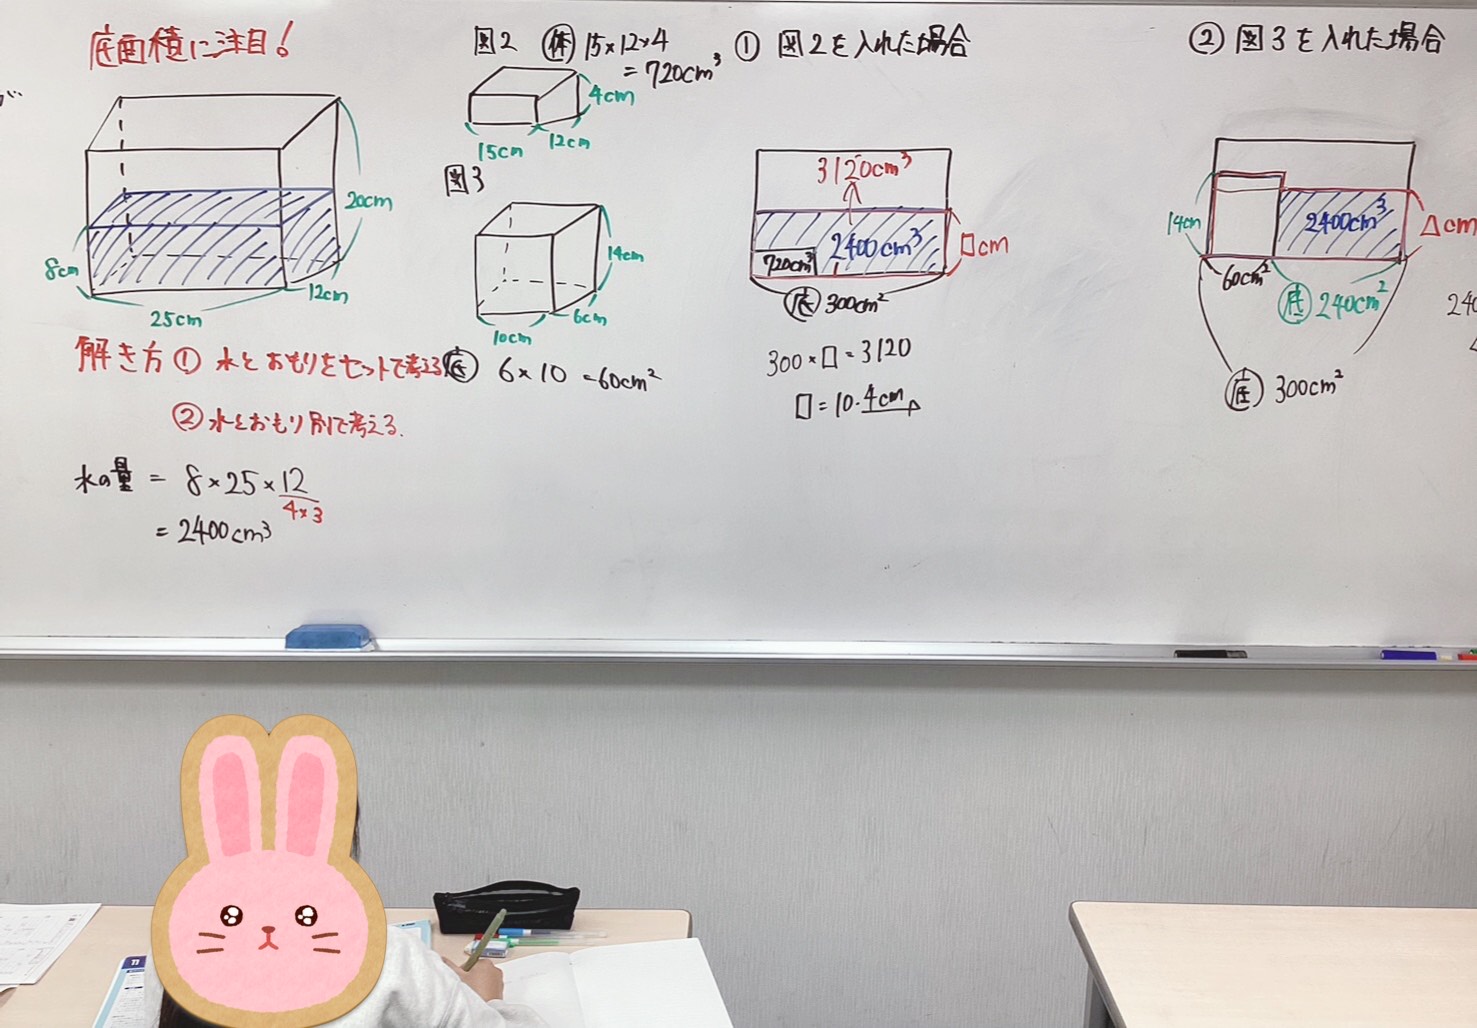 底面積に注目!
20cm
8cm
12cm
25cm
解き方 ① 水とおもりをセットで考える
② 水とおもり別で考える.
水の量 = 8×25×12
4×3
= 2400cm³
図2 体 15×12×4
= 720cm³
4cm
15cm 12cm
図3
14cm
10cm 6cm
底 6×10 =60cm²
① 図2を入れた場合
3120cm³
2400cm³
720cm³
□cm
底 300cm²
300×□=3120
□=10.4cm
② 図3を入れた場合
14cm
2400cm³
△cm
60cm²
底 240cm²
底 300cm²
240